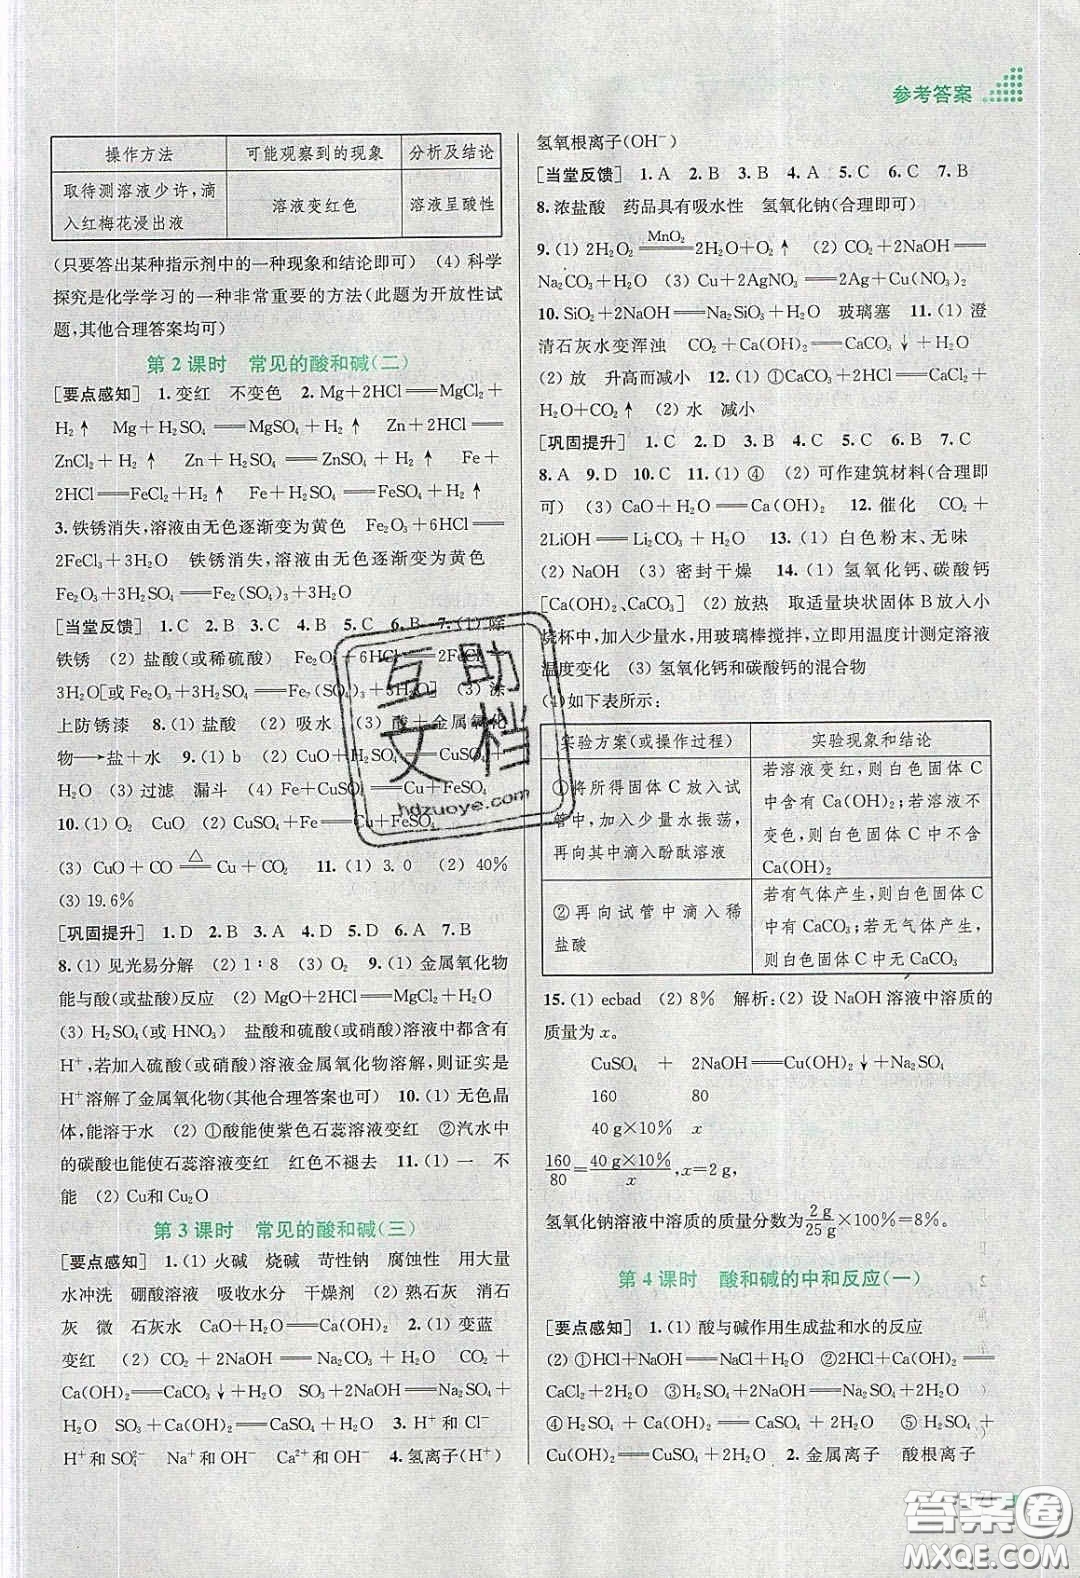 参考答案
操作方法 可能观察到的现象 分析及结论
取待测溶液少许,滴入红梅花浸出液 溶液变红色 溶液呈酸性
(只要答出某种指示剂中的一种现象和结论即可) (4) 科学
探究是化学学习的一种非常重要的方法(此题为开放性试
题,其他合理答案均可)
第 2 课时 常见的酸和碱(二)
[要点感知] 1. 变红 不变色 2. Mg+2HCl══MgCl₂+
H₂↑ Mg+H₂SO₄══MgSO₄+H₂↑ Zn+2HCl══
ZnCl₂+H₂↑ Zn+H₂SO₄══ZnSO₄+H₂↑ Fe+
2HCl══FeCl₂+H₂↑ Fe+H₂SO₄══FeSO₄+H₂↑
3. 铁锈消失,溶液由无色逐渐变为黄色 Fe₂O₃+6HCl══
2FeCl₃+3H₂O 铁锈消失,溶液由无色逐渐变为黄色
Fe₂O₃+3H₂SO₄══Fe₂(SO₄)₃+3H₂O
[当堂反馈] 1. C 2. B 3. C 4. B 5. C 6. B 7. (1) 除
铁锈 (2) 盐酸(或稀硫酸) Fe₂O₃+6HCl══2FeCl₃+
3H₂O[或 Fe₂O₃+3H₂SO₄══Fe₂(SO₄)₃+3H₂O] (3) 涂
上防锈漆 8. (1) 盐酸 (2) 吸水 (3) 酸+金属氧化
物→盐+水 9. (1) b (2) CuO+H₂SO₄══CuSO₄+
H₂O (3) 过滤 漏斗 (4) Fe+CuSO₄══Cu+FeSO₄
10. (1) O₂ CuO (2) CuSO₄+Fe══Cu+FeSO₄
(3) CuO+CO ══△ Cu+CO₂ 11. (1) 3.0 (2) 40%
(3) 19.6%
[巩固提升] 1. D 2. B 3. A 4. D 5. D 6. A 7. B
8. (1) 见光易分解 (2) 1∶8 (3) O₂ 9. (1) 金属氧化物
能与酸(或盐酸)反应 (2) MgO+2HCl══MgCl₂+H₂O
(3) H₂SO₄(或 HNO₃) 盐酸和硫酸(或硝酸)溶液中都含有
H⁺,若加入硫酸(或硝酸)溶液金属氧化物溶解,则证实是
H⁺溶解了金属氧化物(其他合理答案也可) 10. (1) 无色晶
体,能溶于水 (2) ①酸能使紫色石蕊溶液变红 ②汽水中
的碳酸也能使石蕊溶液变红 红色不褪去 11. (1) 一 不
能 (2) Cu和 Cu₂O
第 3 课时 常见的酸和碱(三)
[要点感知] 1. (1) 火碱 烧碱 苛性钠 腐蚀性 用大量
水冲洗 硼酸溶液 吸收水分 干燥剂 (2) 熟石灰 消石
灰 微 石灰水 CaO+H₂O══Ca(OH)₂ 2. (1) 变蓝
变红 (2) CO₂+2NaOH══Na₂CO₃+H₂O CO₂+
Ca(OH)₂══CaCO₃↓+H₂O SO₃+2NaOH══Na₂SO₄+
H₂O SO₃+Ca(OH)₂══CaSO₄+H₂O 3. H⁺和 Cl⁻
H⁺和 SO₄²⁻ Na⁺和 OH⁻ Ca²⁺和 OH⁻ 4. 氢离子(H⁺)
氢氧根离子(OH⁻)
[当堂反馈] 1. A 2. B 3. B 4. A 5. C 6. C 7. B
8. 浓盐酸 药品具有吸水性 氢氧化钠(合理即可)
9. (1) 2H₂O₂ ══MnO₂ 2H₂O+O₂↑ (2) CO₂+2NaOH══
Na₂CO₃+H₂O (3) Cu+2AgNO₃══2Ag+Cu(NO₃)₂
10. SiO₂+2NaOH══Na₂SiO₃+H₂O 玻璃塞 11. (1) 澄
清石灰水变浑浊 CO₂+Ca(OH)₂══CaCO₃↓+H₂O
(2) 放 升高而减小 12. (1) ①CaCO₃+2HCl══CaCl₂+
H₂O+CO₂↑ (2) 水 减小
[巩固提升] 1. C 2. D 3. D 4. C 5. C 6. B 7. C
8. A 9. D 10. C 11. (1) ④ (2) 可作建筑材料(合理即
可) (3) CaO+H₂O══Ca(OH)₂ 12. 催化 CO₂+
2LiOH══Li₂CO₃+H₂O 13. (1) 白色粉末、无味
(2) NaOH (3) 密封干燥 14. (1) 氢氧化钙、碳酸钙
[Ca(OH)₂、CaCO₃] (2) 放热 取适量块状固体 B 放入小
烧杯中,加入少量水,用玻璃棒搅拌,立即用温度计测定溶液
温度变化 (3) 氢氧化钙和碳酸钙的混合物
(4) 如下表所示:
实验方案(或操作过程) 实验现象和结论
①将所得固体 C 放入试管中,加入少量水振荡,再向其中滴入酚酞溶液 若溶液变红,则白色固体 C 中含有 Ca(OH)₂;若溶液不变色,则白色固体 C 中不含 Ca(OH)₂
②再向试管中滴入稀盐酸 若有气体产生,则白色固体 C 中有 CaCO₃;若无气体产生,则白色固体 C 中无 CaCO₃
15. (1) ecbad (2) 8% 解析:(2) 设 NaOH 溶液中溶质的
质量为 x。
CuSO₄ + 2NaOH══Cu(OH)₂↓+Na₂SO₄
160 80
40 g×10% x
160/80=40 g×10%/x,x=2 g,
氢氧化钠溶液中溶质的质量分数为2 g/25 g×100%=8%。
第 4 课时 酸和碱的中和反应(一)
[要点感知] 1. (1) 酸与碱作用生成盐和水的反应
(2) ①HCl+NaOH══NaCl+H₂O ②2HCl+Ca(OH)₂══
CaCl₂+2H₂O ③H₂SO₄+2NaOH══Na₂SO₄+2H₂O
④ H₂SO₄+Ca(OH)₂══CaSO₄+2H₂O ⑤ H₂SO₄+
Cu(OH)₂══CuSO₄+2H₂O 2. 金属离子 酸根离子
互助文档
hdzuoye.com
答案圈
MXQE.COM